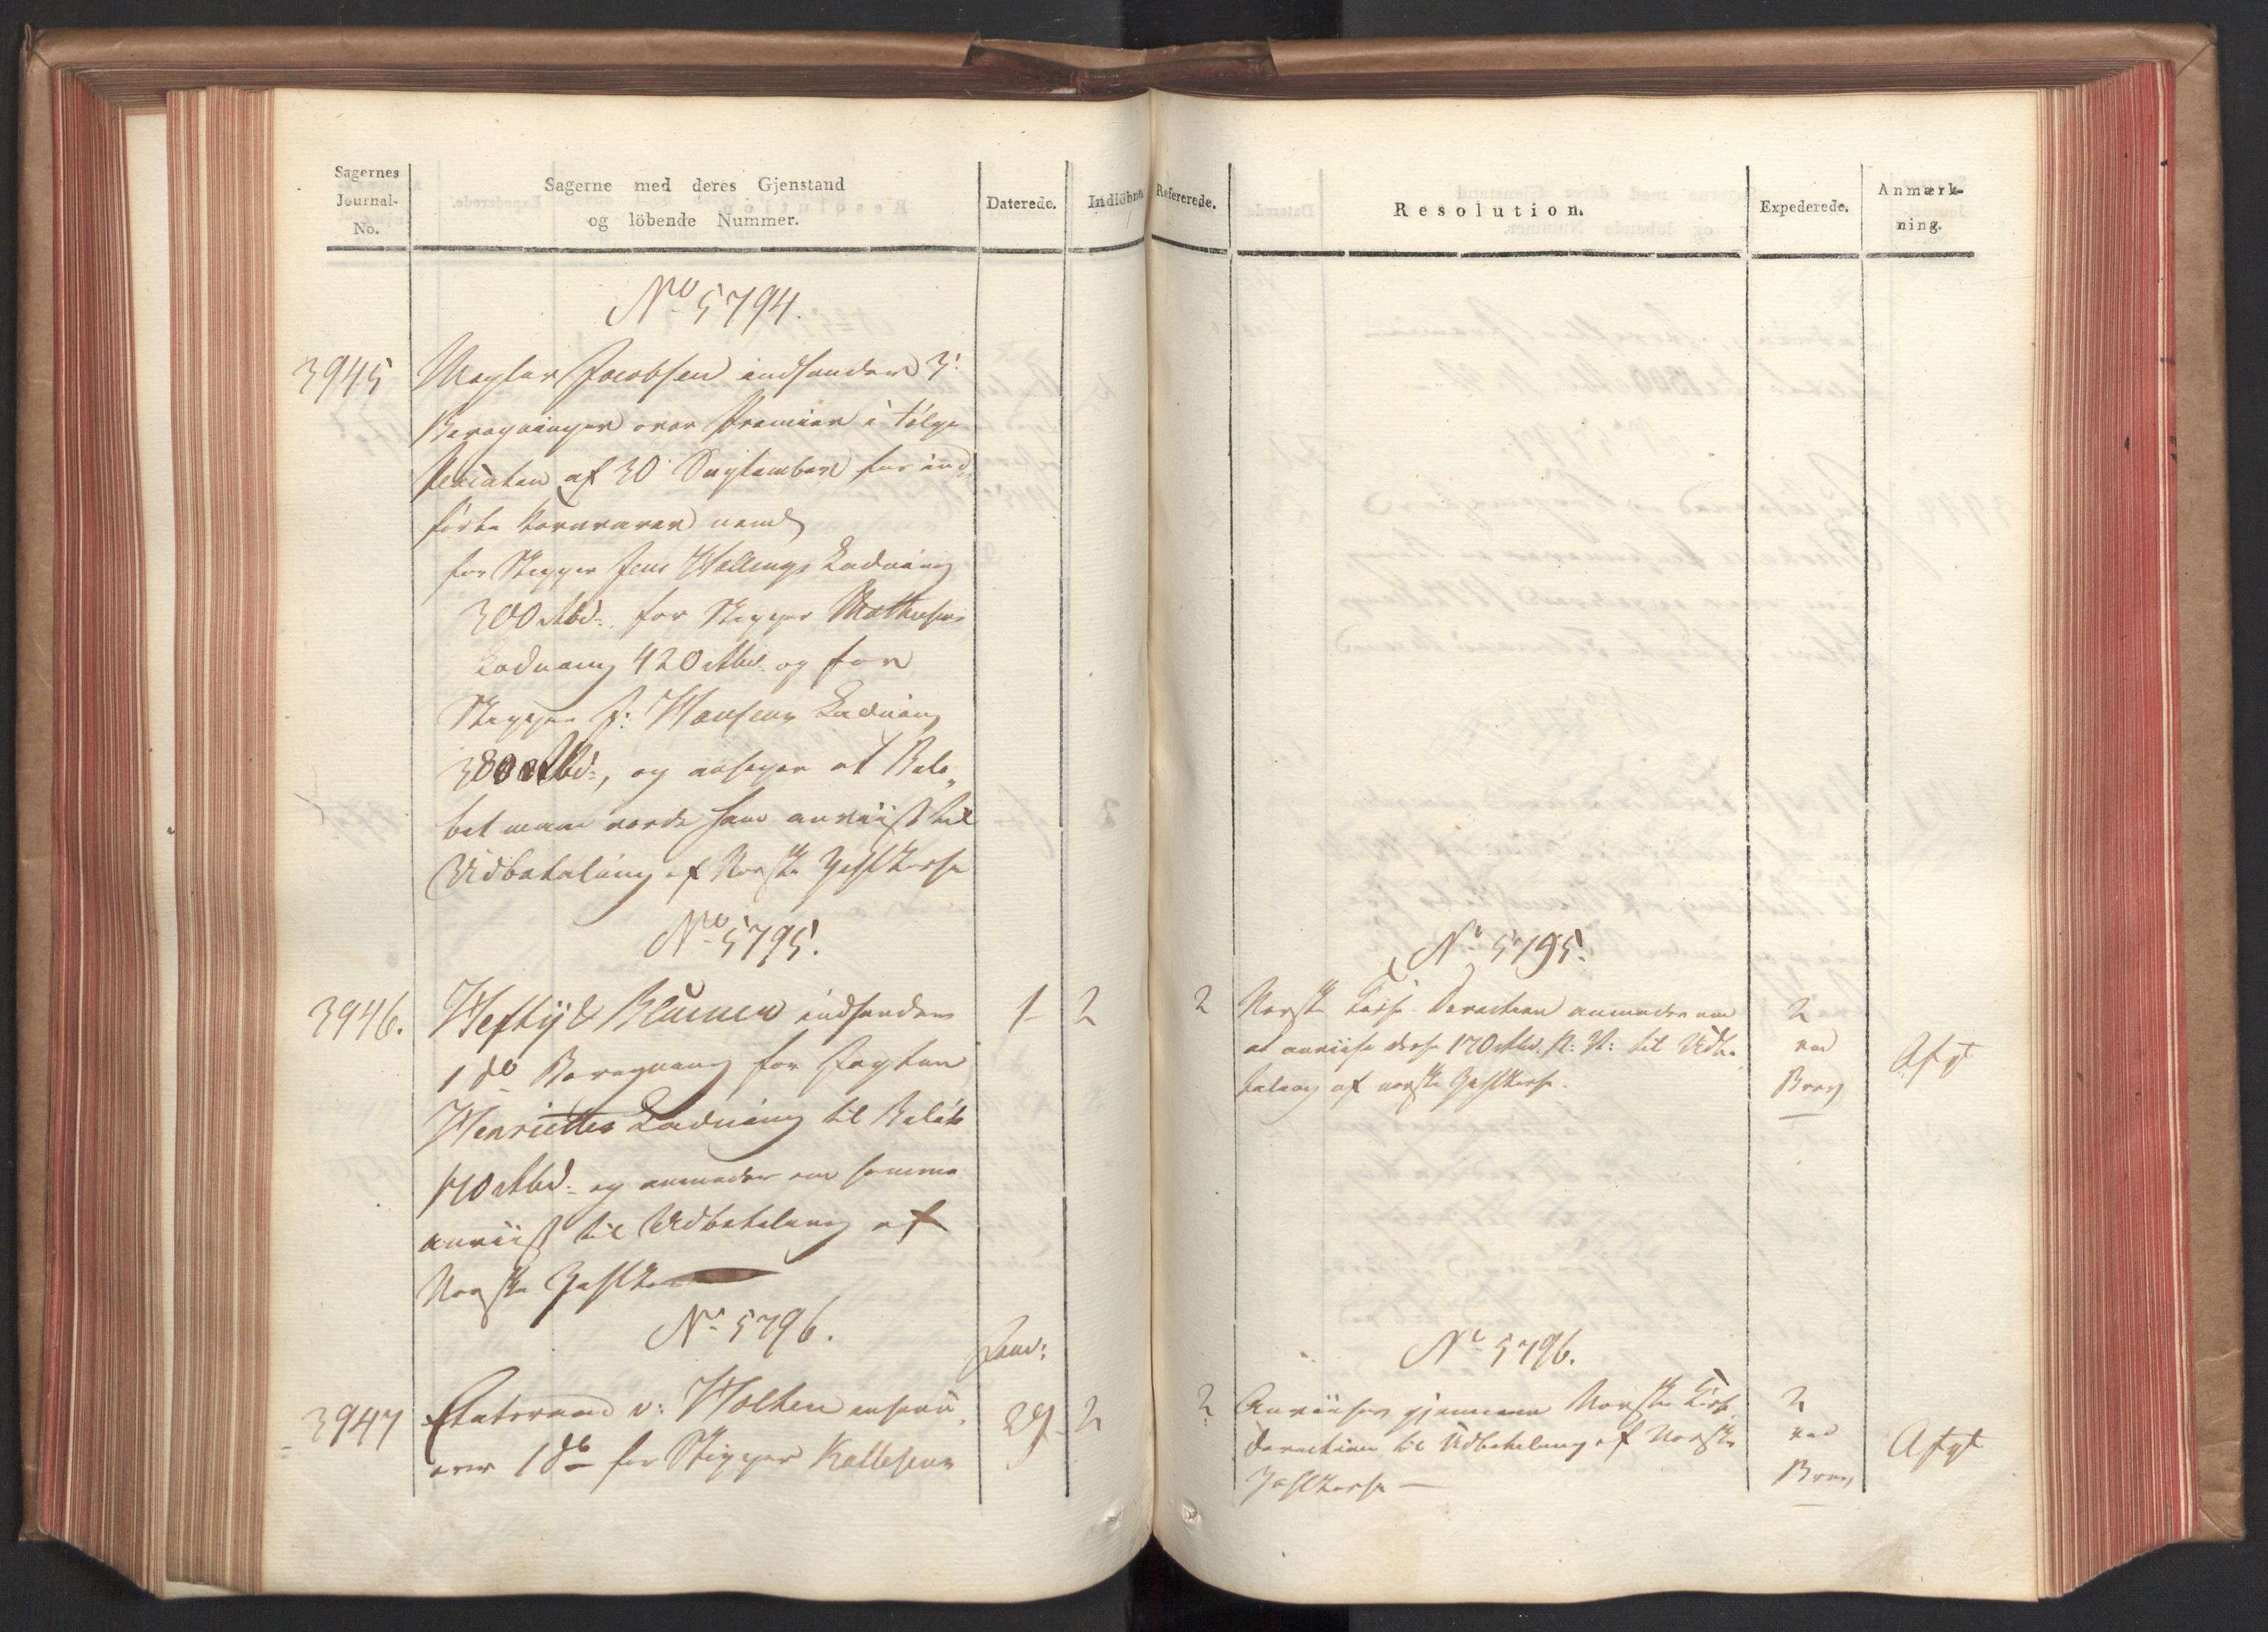 Sagernes
Journal-
No.
Sagerne med deres Gjenstand
og löbende Nummer.
Daterede.
Indlöbne
No 5794.
3945
Megler Jacobsen indsender 3
Beregninger over Premier i følge
Placaten af 30 September for ind
førte Kornvarer nemlig
for Skipper Jens Wallings Ladning
300 Rbd. for Skipper Mathiesens
Ladning 420 Rbd. og for
Skipper P: Hansens Ladning
380 Rbd:, og ansøger at Belø„
bet maae vorde ham anviist til
Udbetaling af Norske Zahlkasse
No 5795.
3946.
Heftÿ & indsender
1 do Beregning for Jagten
Henriettes Ladning til Beløb
170 Rbd. og anmoder om samme
anviist til Udbetaling af
Norske Zahlkasse
1
2
No 5796.
3947
Etatsraad v: Holten
over 1 do for Skipper Kallesens
Janu:
29
2
Refererede.
Resolution.
Expederede.
Anmærk-
ning.
No 5795.
2
Norske Direction anmodes om
at anviise disse 170 Rbd. N: V: til Udbe
taling af norske Zahlkasse.
2
ved
Brev
Afgt
No 5796.
2
Anviises gjennem Norske
Direction til Udbetaling af Norske
Zahlkasse —
2
ved
Brev
Afgt